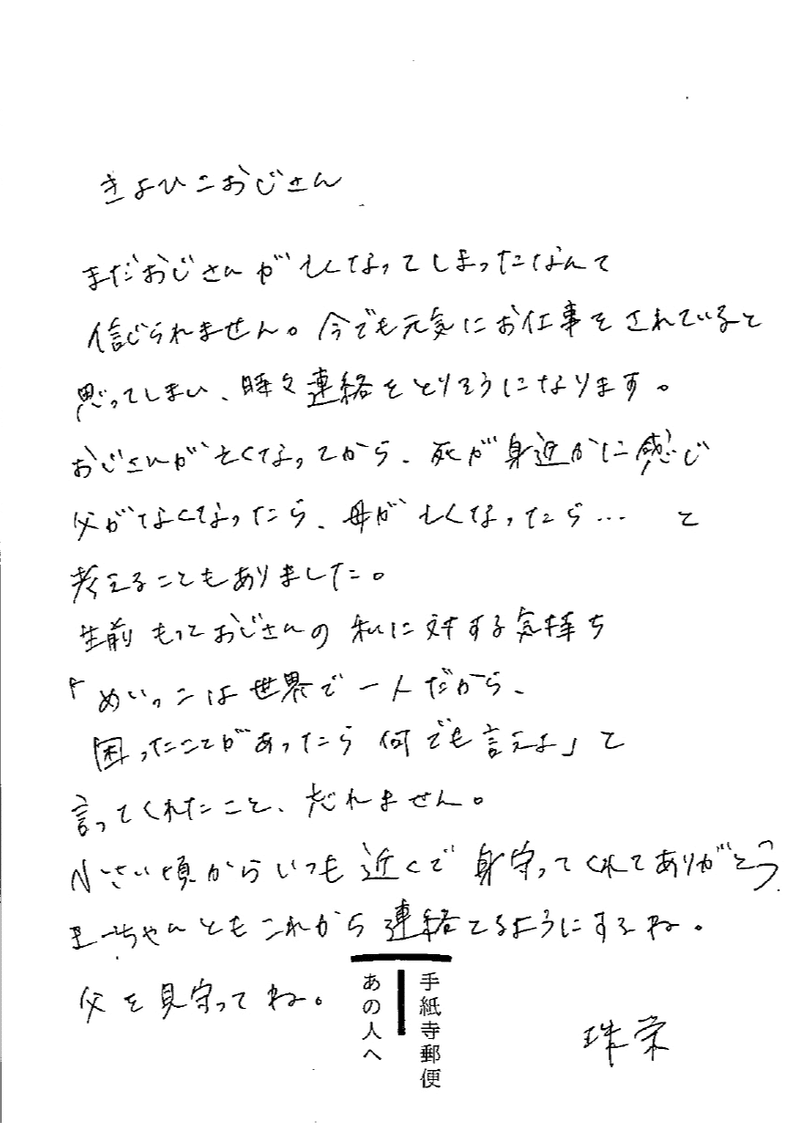 きよひこおじさん
まだおじさんが亡くなってしまったなんて
信じられません。今でも元気にお仕事をされていると
思ってしまい、時々連絡をとりそうになります。
おじさんが亡くなってから、死が身近かに感じ
父がなくなったら、母が亡くなったら… と
考えることもありました。
生前 もっておじさんの 私に対する気持ち
「めいっこは世界で一人だから、
困ったことがあったら 何でも言えよ」と
言ってくれたこと、忘れません。
小さい頃からいつも近くで 身守ってくれてありがとう
ちゃんともこれから連絡とるようにするね。
父を見守ってね。
珠栄
手紙寺郵便
あの人へ